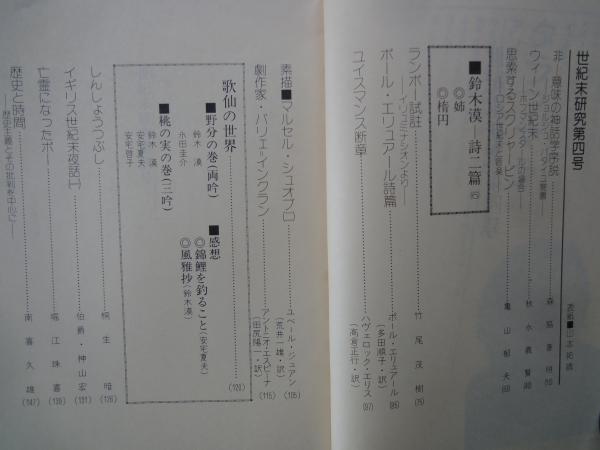 世紀末研究第四号
表紙■山本拓誠
非-意味の神話学序説
―ジョルジュ・バタイユ覚書―
森脇善明
ウィーン世紀末
―ホフマンスタールの場合―
秋永義賢
思索するスクリャービン
―ロシア世紀末と音楽―
亀山郁夫
■鈴木漠―詩二篇
◎姉
◎楕円
ランボー試註
―イリュミナシオンより―
竹尾茂樹(75)
ポール・エリュアール詩篇
ポール・エリュアール
(多田順子・訳)(85)
ユイスマンス断章
ハヴェロック・エリス
(高倉正行・訳)(97)
素描■マルセル・シュオブ
ユベール・ジュアン
(荒井雄・訳)(105)
劇作家・バリェ=インクラン
アントニオ・エスピーナ
(田尻陽一・訳)(115)
歌仙の世界(120)
■野分の巻(両吟)
鈴木漠
永田圭介
■桃の実の巻(三吟)
鈴木漠
安宅夏夫
安宅啓子
■感想
◎錦鯉を釣ること(安宅夏夫)
◎風雅抄(鈴木漠)
しんしょうつぶし
桐生暗(126)
イギリス世紀末夜話
伯爵・神山宏(131)
亡霊になったポー
堀江珠喜(139)
歴史と時間
―歴史主義とその批判を中心に―
南喜久雄(147)